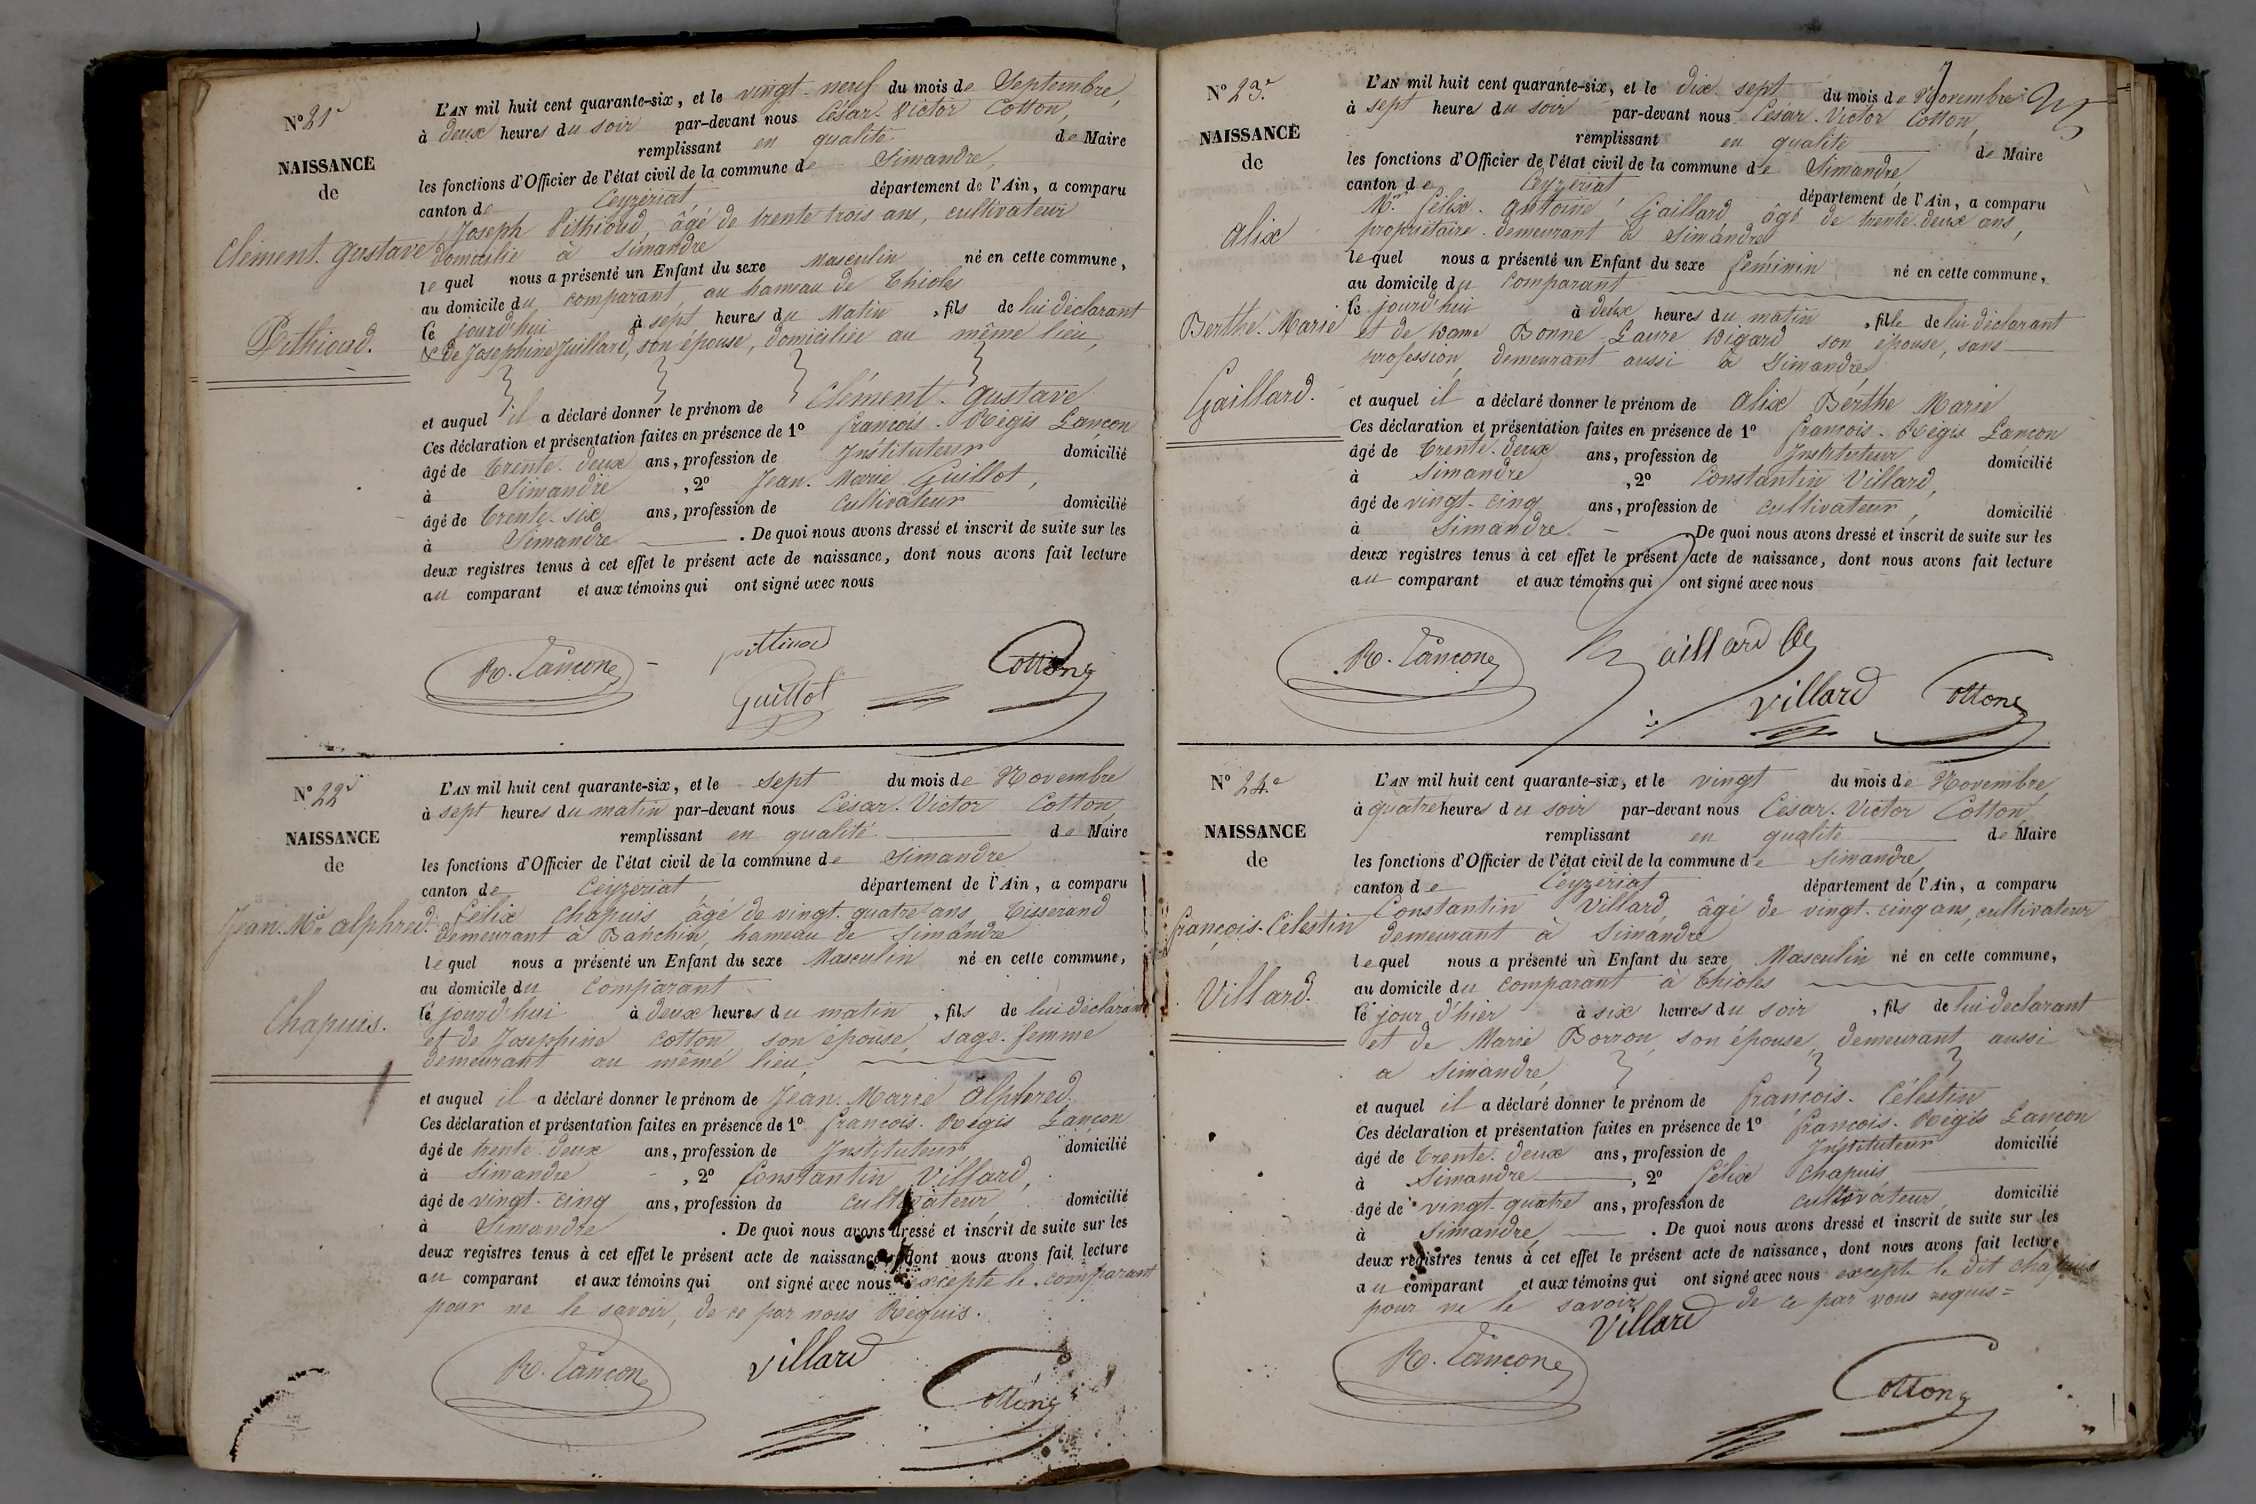 N° 21e
NAISSANCE
de
Clément. Gustave
Pithioud.
L'AN mil huit cent quarante-six, et le vingt-neuf du mois de Septembre,
à deux heures du soir par-devant nous César-Victor Cotton,
remplissant en qualité de Maire
les fonctions d'Officier de l'état civil de la commune de Simandre,
canton de Ceyzériat département de l'Ain, a comparu
Joseph Pithioud, âgé de trente trois ans, cultivateur
domicilié à Simandre
lequel nous a présenté un Enfant du sexe Masculin né en cette commune,
au domicile du comparant, au hameau de Thioles
ce jourd'hui à sept heures du Matin, fils de lui déclarant
& de Josephine Juillard, son épouse, domiciliée au même lieu,
et auquel il a déclaré donner le prénom de Clément. Gustave
Ces déclaration et présentation faites en présence de 1° françois-Régis Lançon
âgé de trente-deux ans, profession de Instituteur domicilié
à Simandre, 2° Jean-Marie Guillot,
âgé de trente-six ans, profession de cultivateur domicilié
à Simandre. De quoi nous avons dressé et inscrit de suite sur les
deux registres tenus à cet effet le présent acte de naissance, dont nous avons fait lecture
au comparant et aux témoins qui ont signé avec nous
R. Lançon
Guillot
Cotton
N° 22e
NAISSANCE
de
Jean. Mie alphred.
Chapuis.
L'AN mil huit cent quarante-six, et le sept du mois de Novembre
à sept heures du matin par-devant nous César-Victor Cotton,
remplissant en qualité de Maire
les fonctions d'Officier de l'état civil de la commune de Simandre
canton de Ceyzériat département de l'Ain, a comparu
félix Chapuis âgé de vingt-quatre ans, tisserand
demeurant à Banchin, hameau de Simandre
lequel nous a présenté un Enfant du sexe Masculin né en cette commune,
au domicile du comparant
ce jourd'hui à deux heures du matin, fils de lui déclarant
et de Josephine Cotton, son épouse, sage-femme
demeurant au même lieu,
et auquel il a déclaré donner le prénom de Jean. Marie Alphred.
Ces déclaration et présentation faites en présence de 1° françois-Régis Lançon
âgé de trente-deux ans, profession de Instituteur domicilié
à Simandre, 2° Constantin Villard,
âgé de vingt-cinq ans, profession de cultivateur, domicilié
à Simandre. De quoi nous avons dressé et inscrit de suite sur les
deux registres tenus à cet effet le présent acte de naissance, dont nous avons fait lecture
au comparant et aux témoins qui ont signé avec nous excepté le comparant
pour ne le savoir, de ce par nous Réquis.
R. Lançon
Villard
Cotton
N° 23e
NAISSANCE
de
Alix
Berthe. Marie
Gaillard.
L'AN mil huit cent quarante-six, et le dix sept du mois de Novembre
à sept heures du soir par-devant nous César-Victor Cotton,
remplissant en qualité de Maire
les fonctions d'Officier de l'état civil de la commune de Simandre,
canton de Ceyzériat département de l'Ain, a comparu
Mr. félix-antoine Gaillard âgé de trente-deux ans,
propriétaire demeurant à Simandre
lequel nous a présenté un Enfant du sexe féminin né en cette commune,
au domicile du comparant
ce jourd'hui à deux heures du matin, fille de lui déclarant
et de Dame Bonne Laure Digard son épouse, sans
profession, demeurant aussi à Simandre
et auquel il a déclaré donner le prénom de Alix Berthe Marie
Ces déclaration et présentation faites en présence de 1° françois-Régis Lançon
âgé de trente-deux ans, profession de Instituteur domicilié
à Simandre, 2° Constantin Villard,
âgé de vingt-cinq ans, profession de cultivateur, domicilié
à Simandre. De quoi nous avons dressé et inscrit de suite sur les
deux registres tenus à cet effet le présent acte de naissance, dont nous avons fait lecture
au comparant et aux témoins qui ont signé avec nous
R. Lançon
Gaillard
Villard
Cotton
N° 24e
NAISSANCE
de
françois-Célestin
Villard.
L'AN mil huit cent quarante-six, et le vingt du mois de Novembre,
à quatre heures du soir par-devant nous César-Victor Cotton,
remplissant en qualité de Maire
les fonctions d'Officier de l'état civil de la commune de Simandre,
canton de Ceyzériat département de l'Ain, a comparu
Constantin Villard, âgé de vingt-cinq ans, cultivateur
demeurant à Simandre
lequel nous a présenté un Enfant du sexe Masculin né en cette commune,
au domicile du comparant à Thioles
le jour d'hier à six heures du soir, fils de lui déclarant
et de Marie Borron, son épouse, demeurant aussi
a Simandre,
et auquel il a déclaré donner le prénom de françois. Célestin
Ces déclaration et présentation faites en présence de 1° françois-Régis Lançon
âgé de trente-deux ans, profession de Instituteur domicilié
à Simandre, 2° félix Chapuis,
âgé de vingt-quatre ans, profession de cultivateur, domicilié
à Simandre,. De quoi nous avons dressé et inscrit de suite sur les
deux registres tenus à cet effet le présent acte de naissance, dont nous avons fait lecture
au comparant et aux témoins qui ont signé avec nous excepté le dit Chapuis
pour ne le savoir de ce par nous requis=
Villard
R. Lançon
Cotton